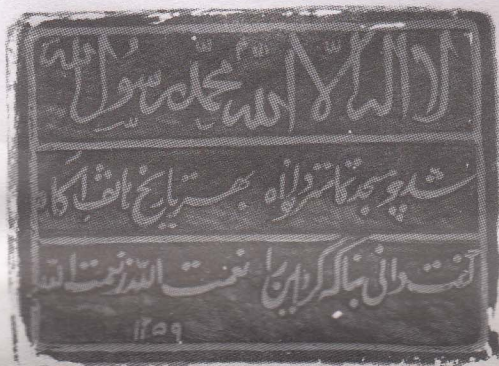 لا اله الا الله محمد رسول الله
شد چو مسجد بهر تاریخ هاتف آگاه
گفت دانی بنا که کرد این را نعمت الله ز نعمت الله
۱۲۵۹